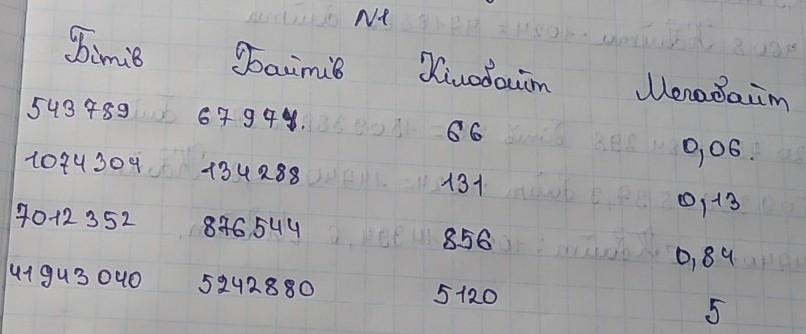 №1
Бітів Байтів Кілобайт Мегабайт
543789 67974. 66 0,06.
1074304 134288 131 0,13
7012352 876544 856 0,84
41943040 5242880 5120 5